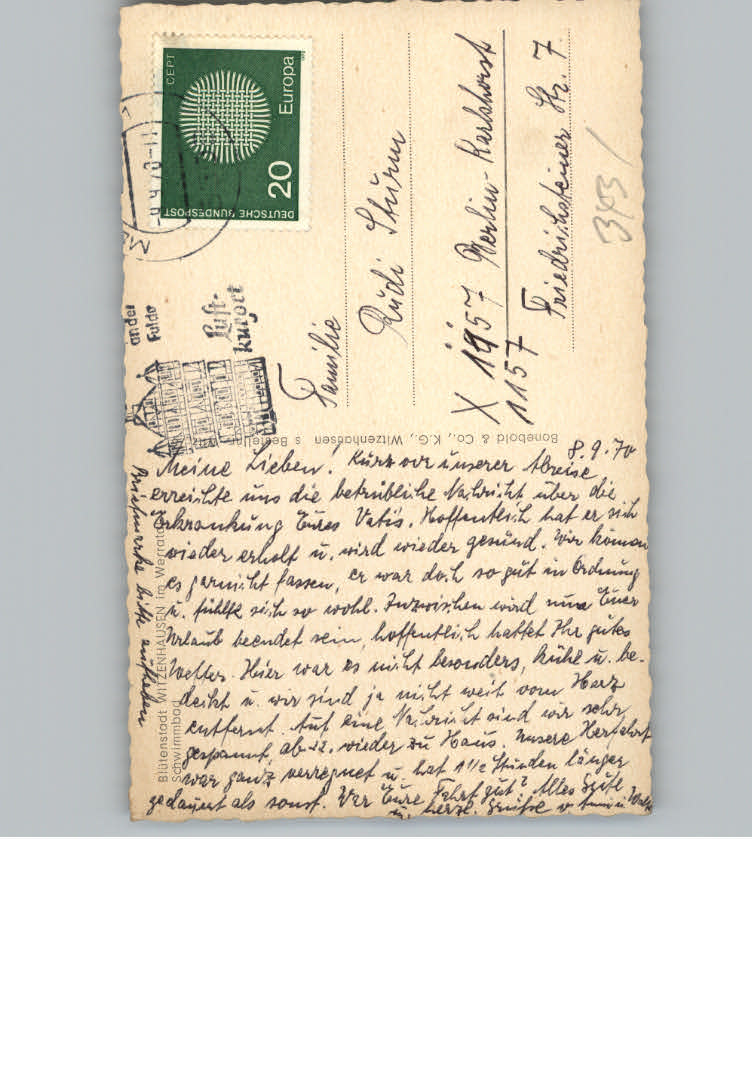 CEPT
Europa
20
DEUTSCHE BUNDESPOST
9.70-11
an der
Fulda
Luft-
kurort
Familie
Rudi Sturm
X 1957 Berlin-Karlshorst
1157
Friedrichsteiner Str. 7
353/
Bonebold & Co., K.G., Witzenhausen
8.9.70
Meine Lieben! Kurz vor unserer Abreise
erreichte uns die betrübliche Nachricht über die
Erkrankung Eures Vatis. Hoffentlich hat er sich
wieder erholt u. wird wieder gesund. Wir können
es garnicht fassen, er war doch so gut in Ordnung
u. fühlte sich so wohl. Inzwischen wird nun Euer
Urlaub beendet sein, hoffentlich hattet Ihr gutes
Wetter. Hier war es nicht besonders, kühl u. be-
deckt u. wir sind ja nicht weit vom Harz
entfernt. Auf eine Nachricht sind wir sehr
gespannt, ab 22. wieder zu Haus. Unsere Herfahrt
war ganz verregnet u. hat 1 1/2 Stunden länger
gedauert als sonst. War Eure Fahrt gut? Alles Gute
u. herzl. Grüße v. u.
Briefmarke bitte aufheben
Blütenstadt WITZENHAUSEN im Werratal
Schwimmbad